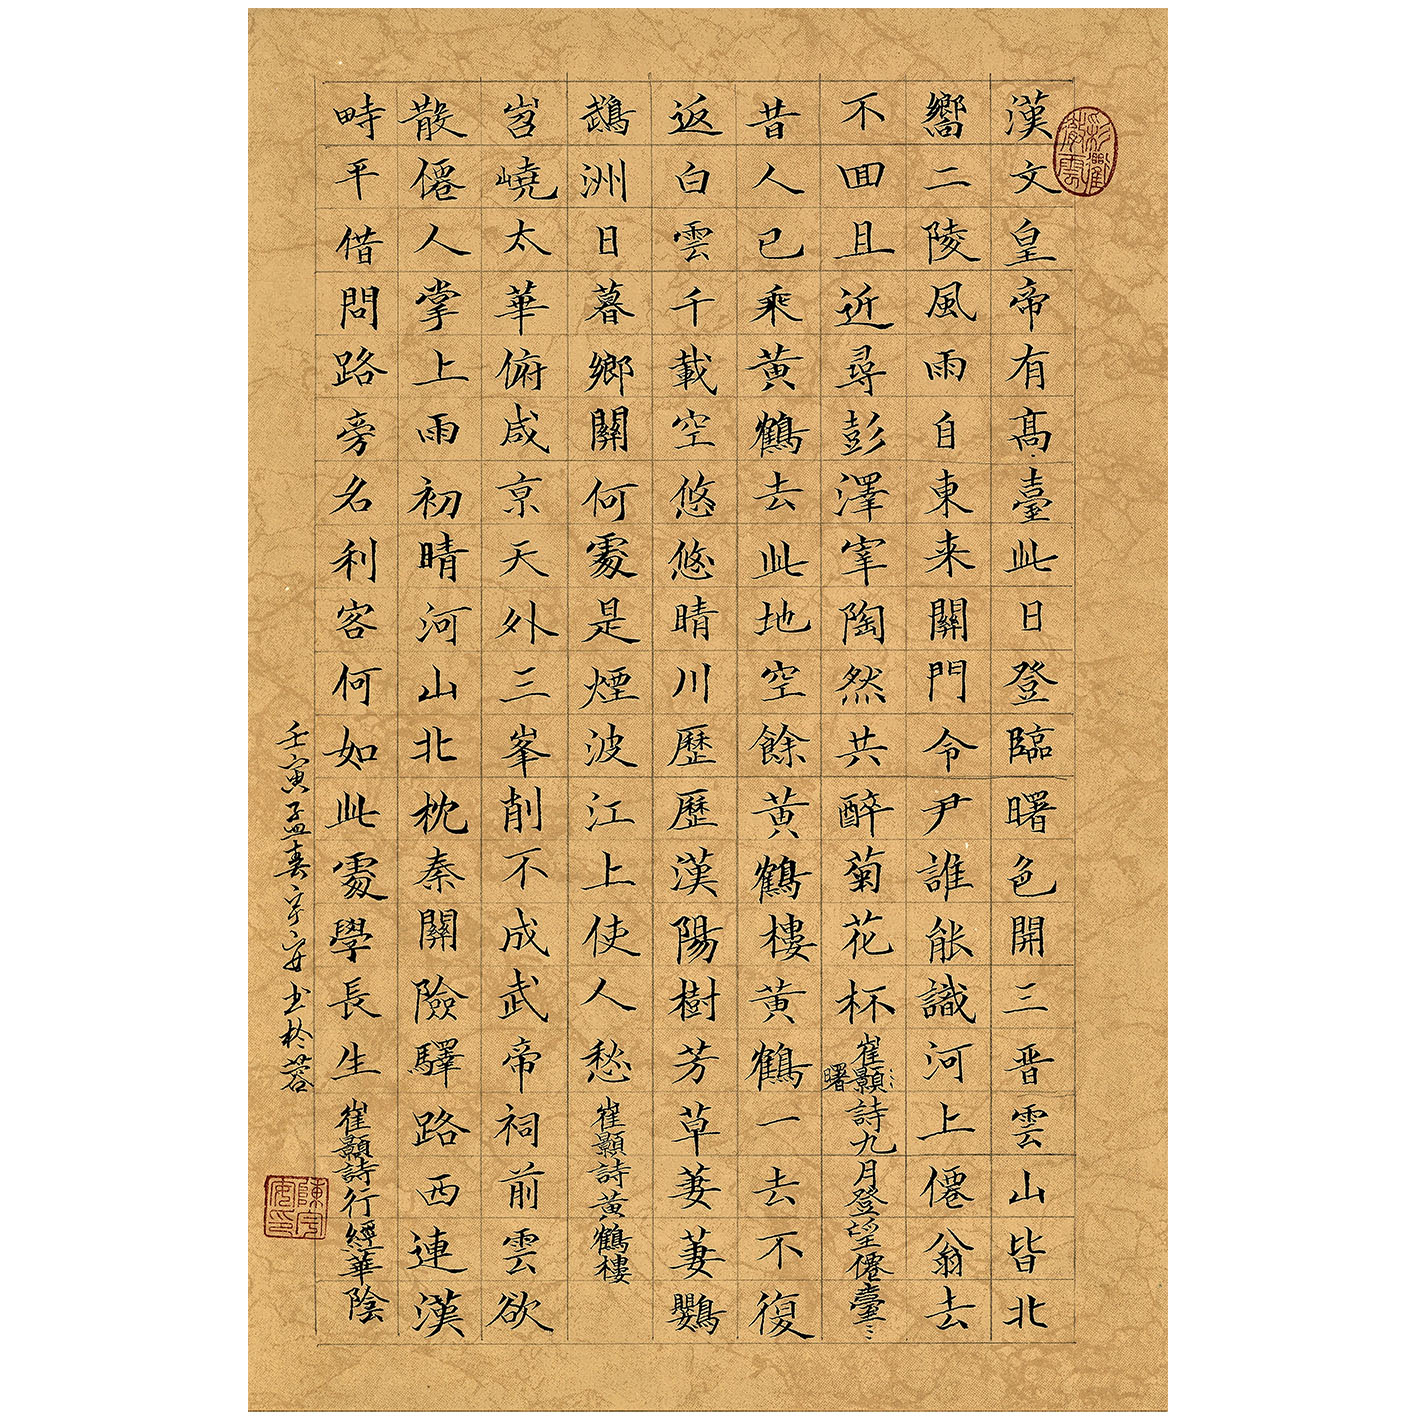 彩徹雲衢
漢文皇帝有高臺此日登臨曙色開三晋雲山皆北
嚮二陵風雨自東来關門令尹誰能識河上僊翁去
不囬且近尋彭澤宰陶然共醉菊花杯崔顥曙詩九月登望僊臺
昔人已乘黄鶴去此地空餘黄鶴樓黄鶴一去不復
返白雲千載空悠悠晴川歷歷漢陽樹芳草萋萋鸚
鵡洲日暮鄉關何處是煙波江上使人愁崔顥詩黄鶴樓
岧嶢太華俯咸京天外三峯削不成武帝祠前雲欲
散僊人掌上雨初晴河山北枕秦關險驛路西連漢
畤平借問路旁名利客何如此處學長生崔顥詩行經華陰
壬寅孟春宇安书於蓉
陳宇安印